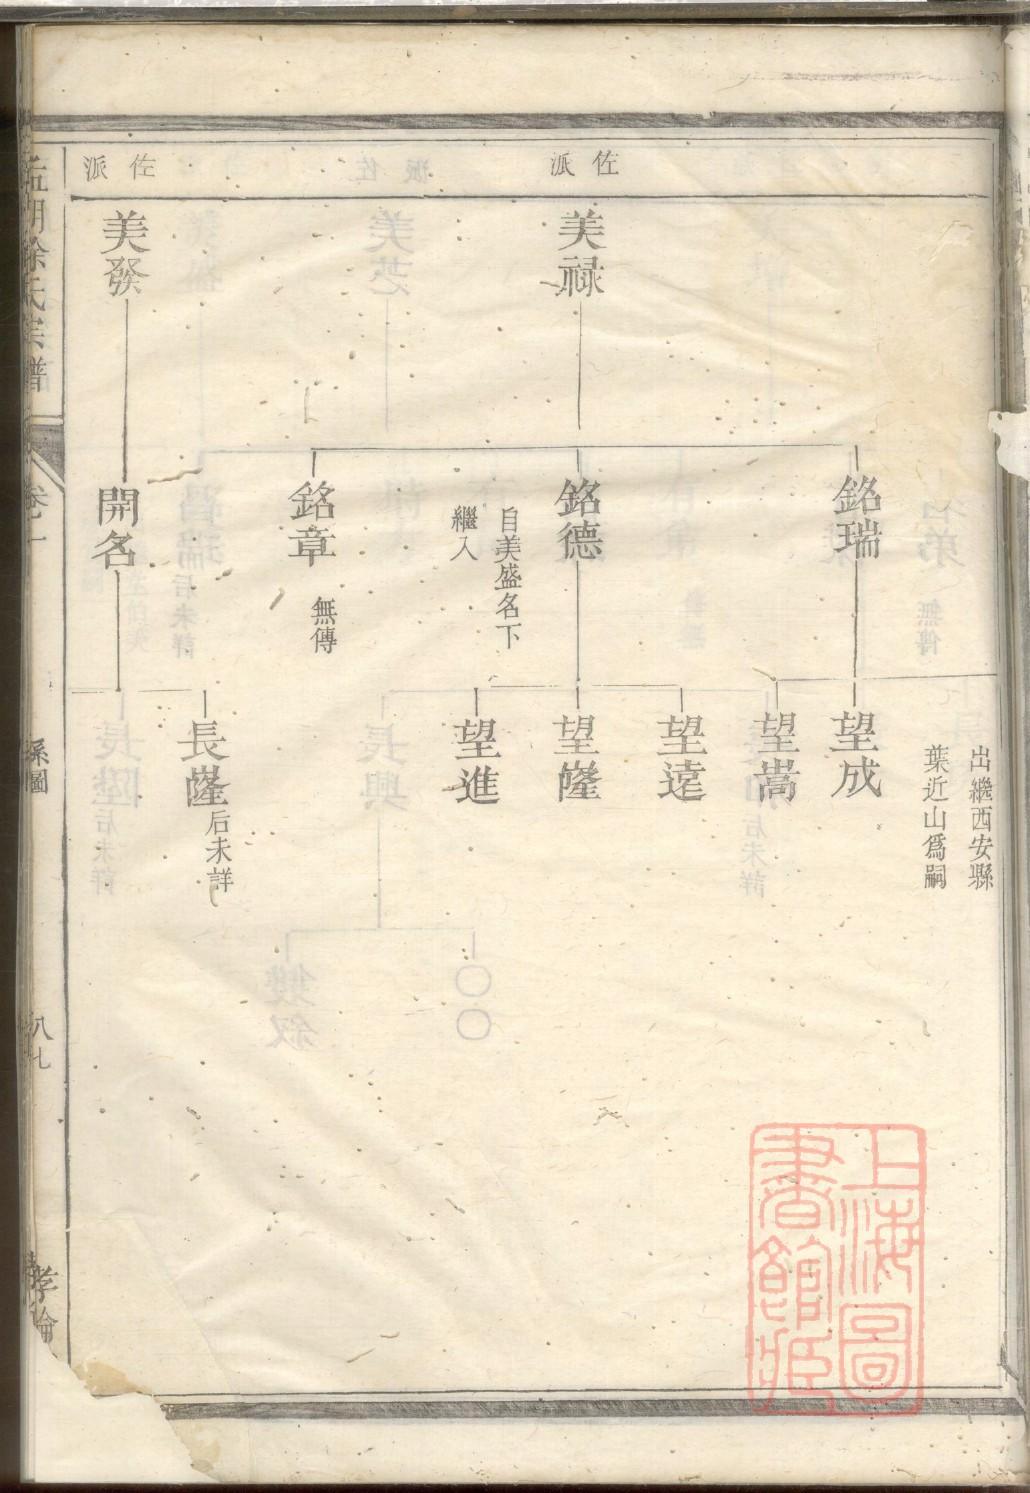 佐派
美禄
銘瑞
銘德
自美盛名下
繼入
銘章
無傳
出繼西安縣
葉近山爲嗣
望成
望嵩
望遠
望隆
望進
佐派
美發
開名
長隆
后未詳
徐氏宗譜
卷一
系圖
八七
孝倫
上海圖
書館藏